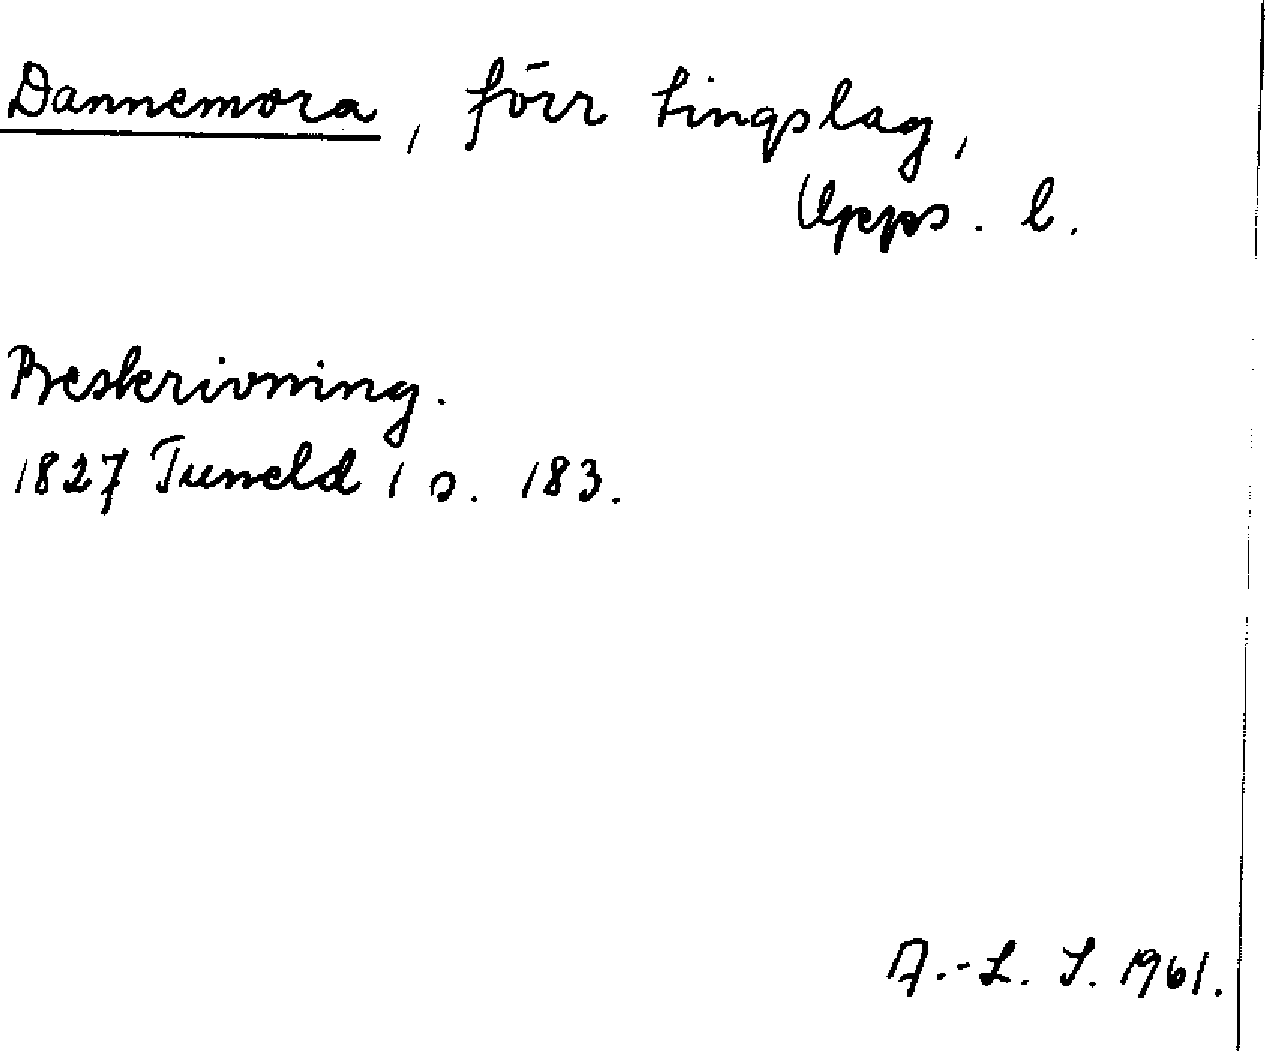 Dannemora, förr tingslag,
Upps. l.
Beskrivning.
1827 Tuneld 1 s. 183.
A.-L. S. 1961.